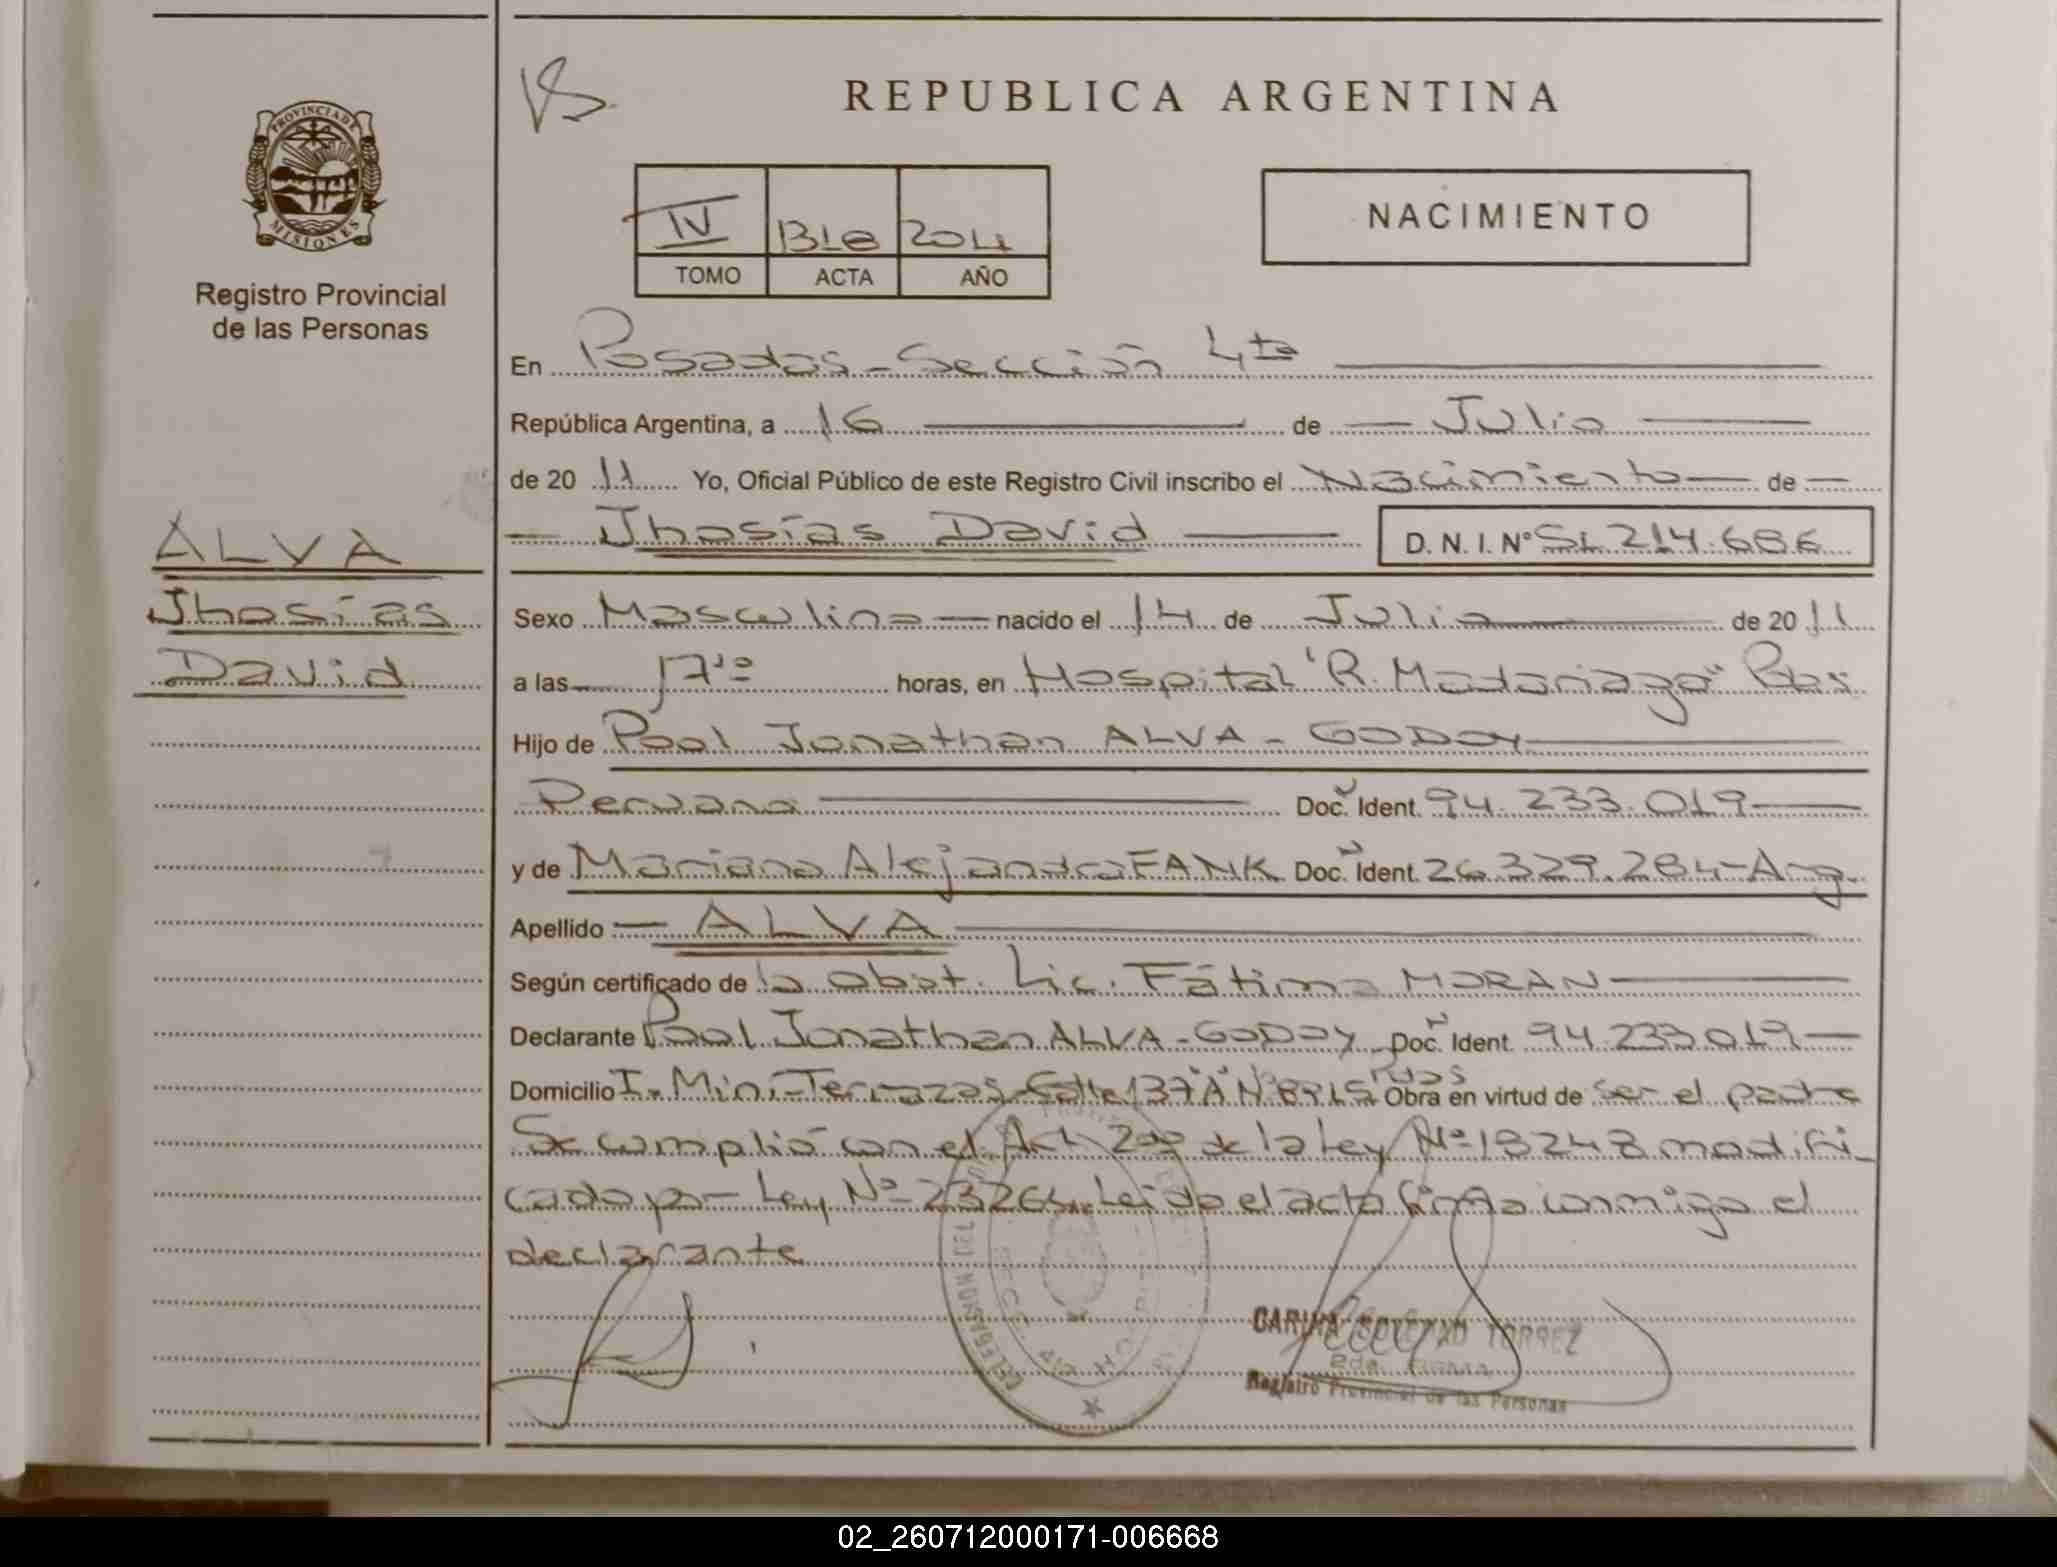 REPUBLICA ARGENTINA
PROVINCIA DE MISIONES
Registro Provincial
de las Personas
NACIMIENTO
IV
TOMO ACTA AÑO
En Posadas - Sección 4ta
República Argentina, a 16 de Julio
de 2011 Yo, Oficial Público de este Registro Civil inscribo el Nacimiento de
Jhosías David D. N. I. N°
ALVA
Jhosías
David
Sexo Masculino nacido el 14 de Julio de 2011
a las 17 horas, en Hospital "R. Madariaga" Pdas
Hijo de Pool Jonathan ALVA - GODOY
Peruana Doc. Ident. 94.233.019
y de Mariana Alejandra FANK Doc. Ident. 26.329.284 - Arg.
Apellido ALVA
Según certificado de la obst. Lic. Fátima MORAN
Declarante Pool Jonathan ALVA - GODOY Doc. Ident. 94.233.019
Domicilio I. Mini-Terrazas - Calle 137 "A" N° Pdas Obra en virtud de ser el padre
Se cumplió con el Art. 2do de la Ley N° 18248 modifi-
cado por Ley N° 23264. Leido el acta firma conmigo el
declarante
CARINA SOLEDAD TORREZ
2da. Firma
Registro Provincial de las Personas
02_260712000171-006668